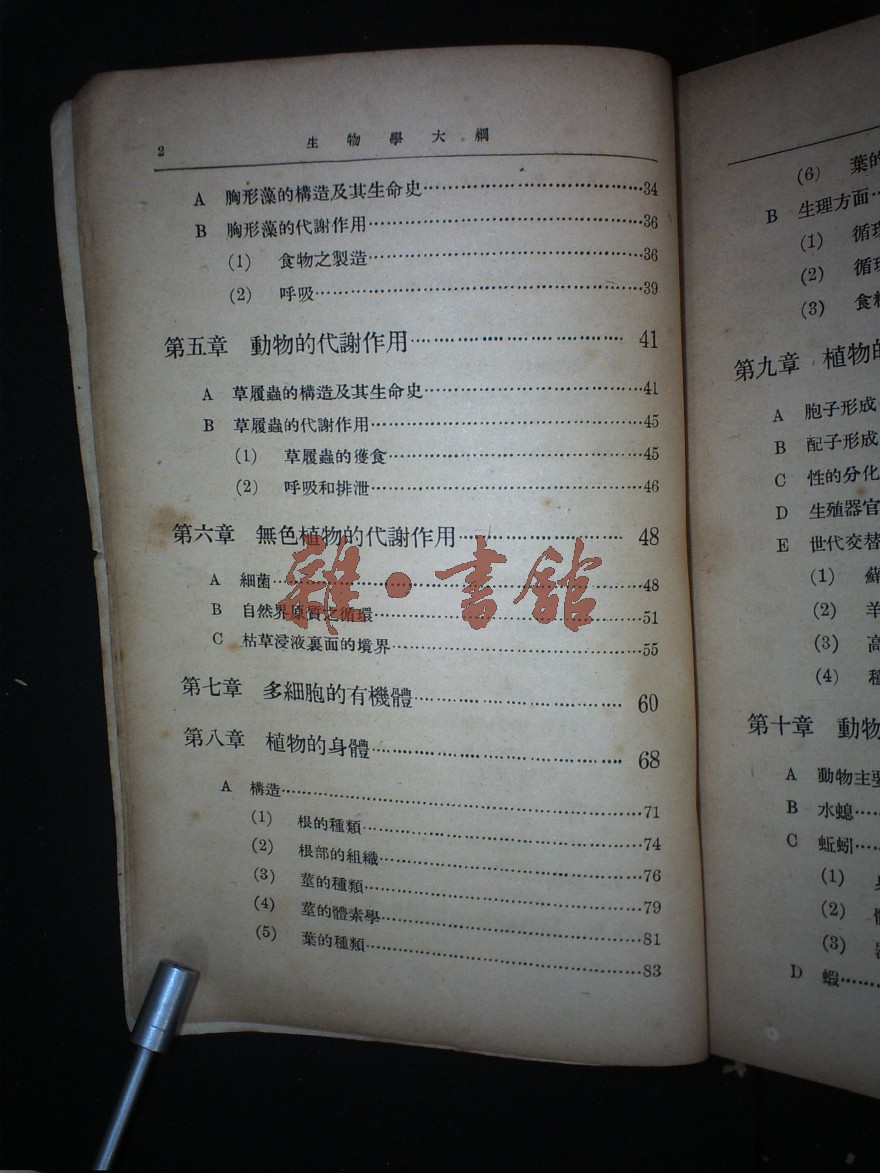 2 生物學大綱
A 胸形藻的構造及其生命史……34
B 胸形藻的代謝作用……36
(1) 食物之製造……36
(2) 呼吸……39
第五章 動物的代謝作用…… 41
A 草履蟲的構造及其生命史……41
B 草履蟲的代謝作用……45
(1) 草履蟲的獲食……45
(2) 呼吸和排泄……46
第六章 無色植物的代謝作用…… 48
A 細菌……48
B 自然界原質之循環……51
C 枯草浸液裏面的境界……55
第七章 多細胞的有機體…… 60
第八章 植物的身體…… 68
A 構造……71
(1) 根的種類……74
(2) 根部的組織……76
(3) 莖的種類……79
(4) 莖的體素學……81
(5) 葉的種類……83
雜·書館
(6) 葉的
B 生理方面…
(1) 循環
(2) 循環
(3) 食料
第九章 植物的
A 胞子形成
B 配子形成
C 性的分化
D 生殖器官
E 世代交替
(1) 蘇
(2) 羊
(3) 高
(4) 種
第十章 動物
A 動物主要
B 水螅……
C 蚯蚓……
(1)
(2)
(3)
D 蝦……